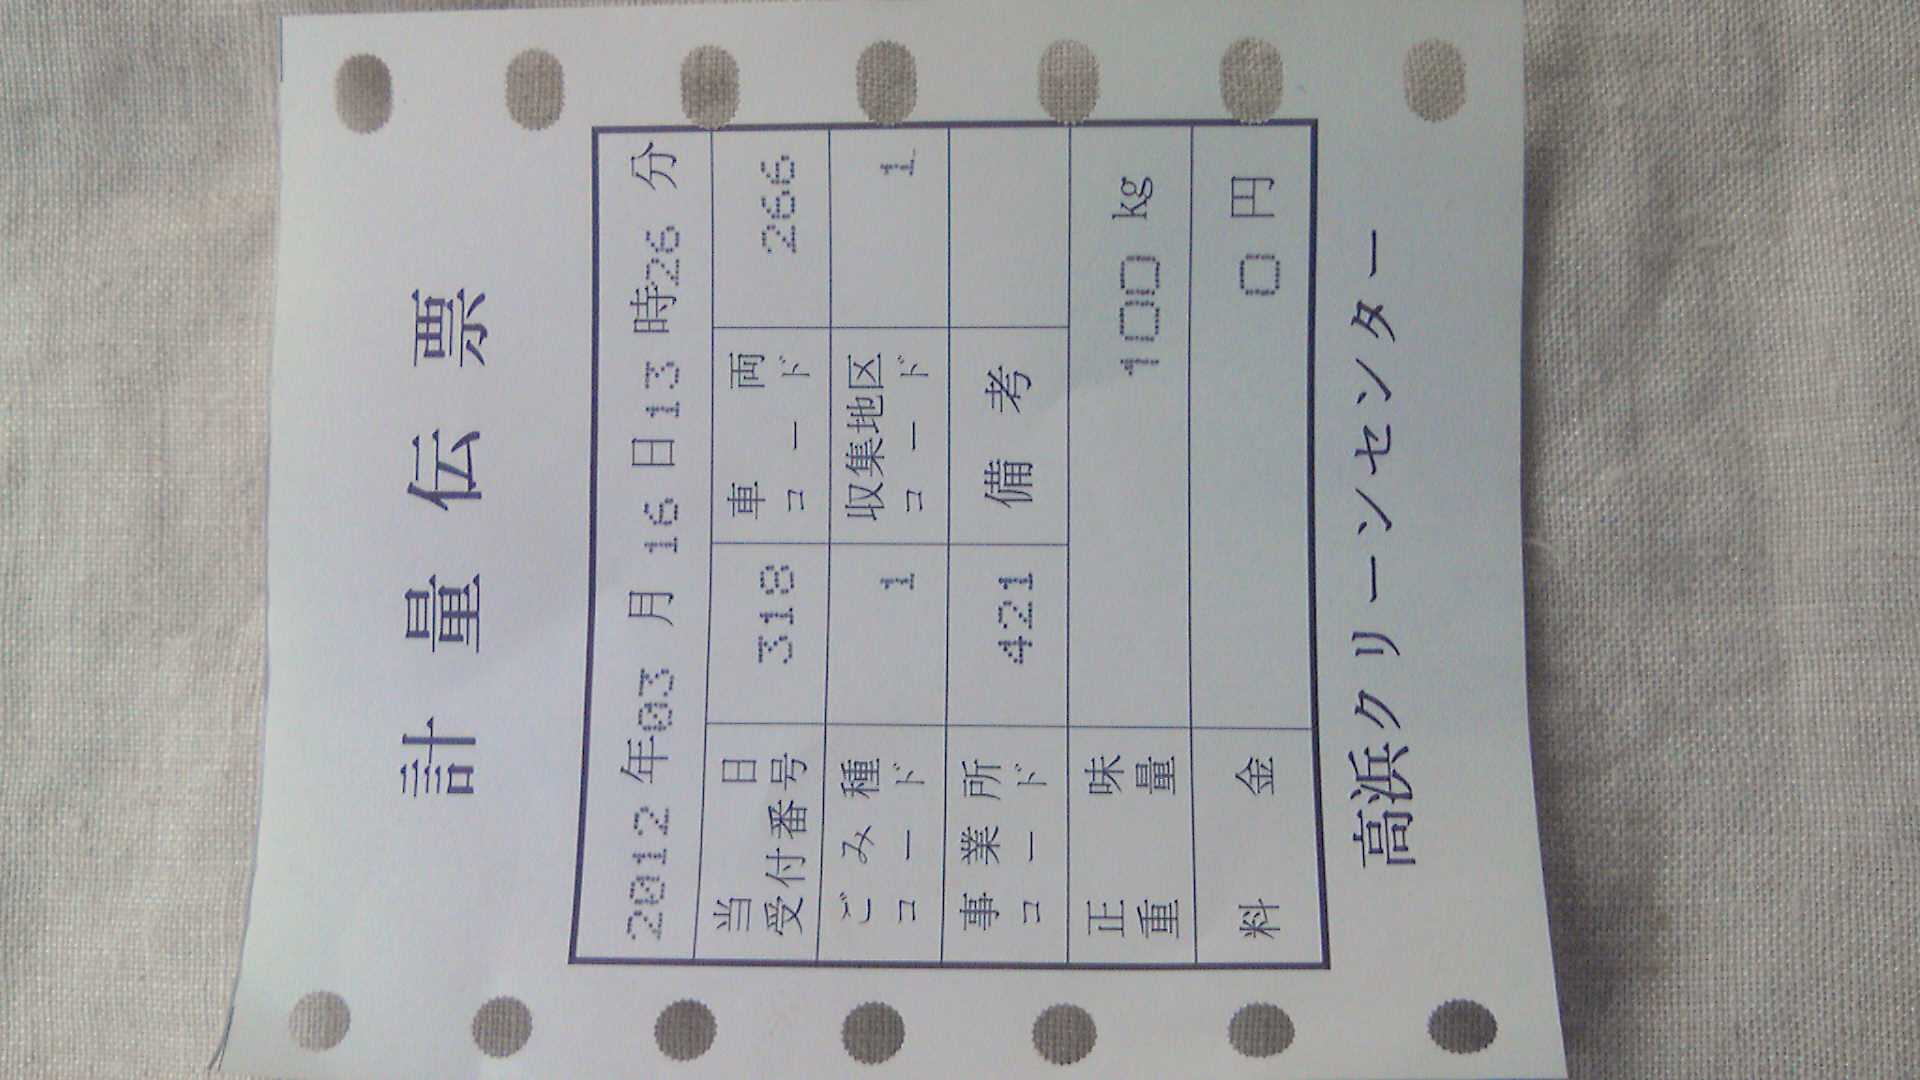 計量伝票
2012年03月16日13時26分
当日受付番号 318 車両コード 266
ごみ種コード 1 収集地区コード 1
事業所コード 421 備考
正味重量 100 kg
料金 0 円
高浜クリーンセンター